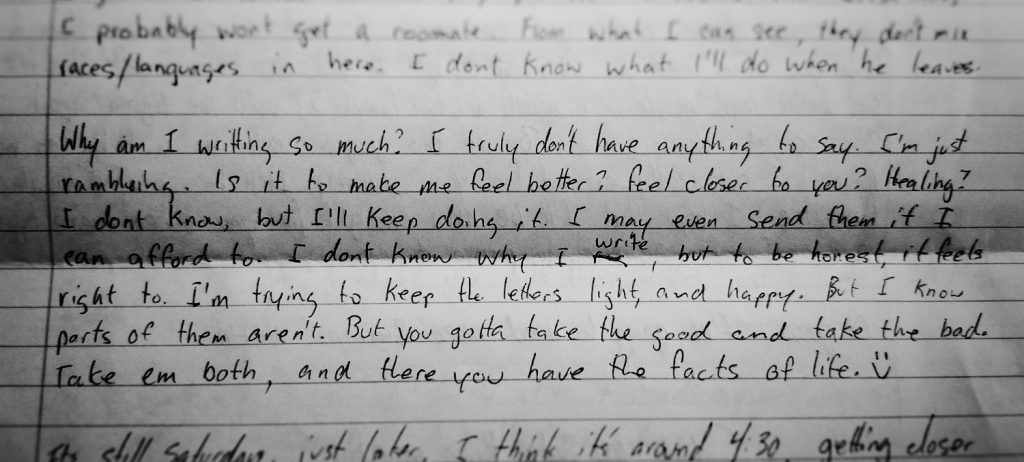 I probably won't get a roomate. From what I can see, they don't mix
races/languages in here. I dont know what I'll do when he leaves
Why am I writting so much? I truly don't have anything to say. I'm just
rambluihg. Is it to make me feel better? Feel closer to you? Healing?
I dont know, but I'll keep doing it. I may even send them if I
can afford to. I dont know why I write, but to be honest, it feels
right to. I'm trying to keep the letters light, and happy. But I know
parts of them aren't. But you gotta take the good and take the bad.
Take em both, and there you have the facts of life. :)
Its still Saturday, just later. I think it's around 4:30, getting closer